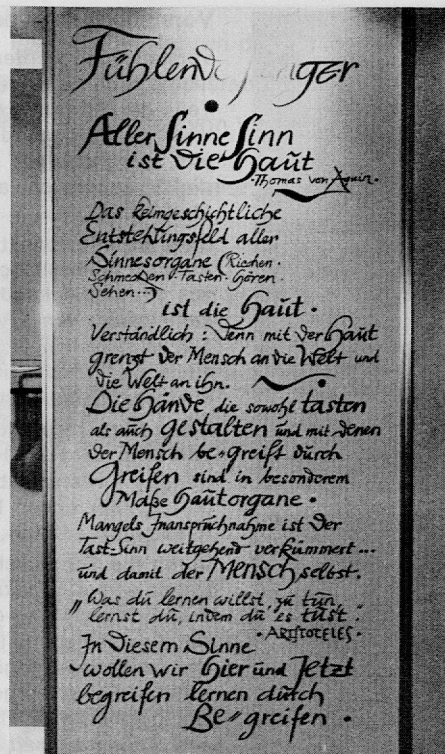 Fühlende
Aller Sinne Sinn
ist die Haut
· Thomas von Aquin ·
Das keimgeschichtliche
Entstehungsfeld aller
Sinnesorgane (Riechen ·
Schmecken · Tasten · Hören ·
Sehen ··)
ist die Haut ·
Verständlich : denn mit der Haut
grenzt der Mensch an die Welt und
die Welt an ihn.
Die Hände die sowohl tasten
als auch gestalten und mit denen
der Mensch be-greift durch
Greifen sind in besonderem
Maße Hautorgane ·
Mangels Inanspruchnahme ist der
Tast-Sinn weitgehend verkümmert ...
und damit der MENSCH selbst.
„Was du lernen willst, zu tun,
lernst du, indem du es tust."
· ARISTOTELES ·
In diesem Sinne
wollen wir Hier und Jetzt
begreifen lernen durch
Be=greifen ·